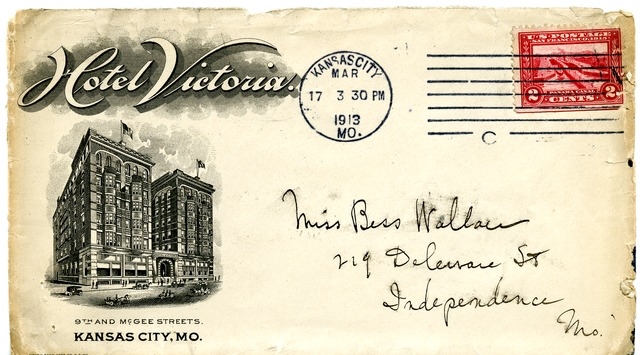 Hotel Victoria.
KANSAS CITY
MAR
17 3 30 PM
1913
MO.
U.S. POSTAGE
SAN FRANCISCO, 1915
PANAMA CANAL
2 CENTS 2
C
Miss Bess Wallace
219 Delaware St
Independence
Mo.
9TH AND MCGEE STREETS.
KANSAS CITY, MO.